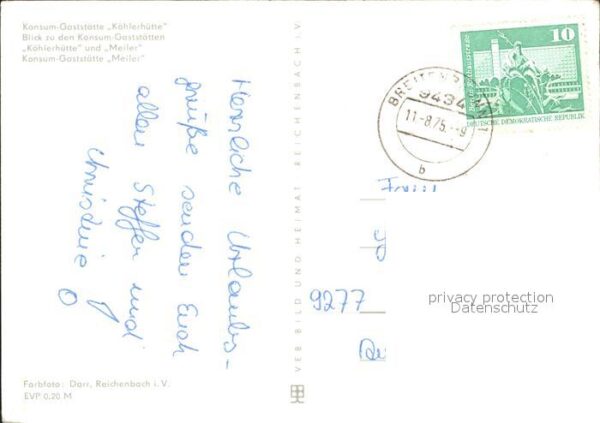 Konsum-Gaststätte „Köhlerhütte“
Blick zu den Konsum-Gaststätten
„Köhlerhütte“ und „Meiler“
Konsum-Gaststätte „Meiler“
Herzliche Urlaubs-
grüße senden Euch
allen Steffen und
Christine
Farbfoto: Darr, Reichenbach i. V.
EVP 0,20 M
VEB BILD UND HEIMAT REICHENBACH I. V.
10
DEUTSCHE DEMOKRATISCHE REPUBLIK
9434
11.-8.75.-9
b
9277
privacy protection
Datenschutz